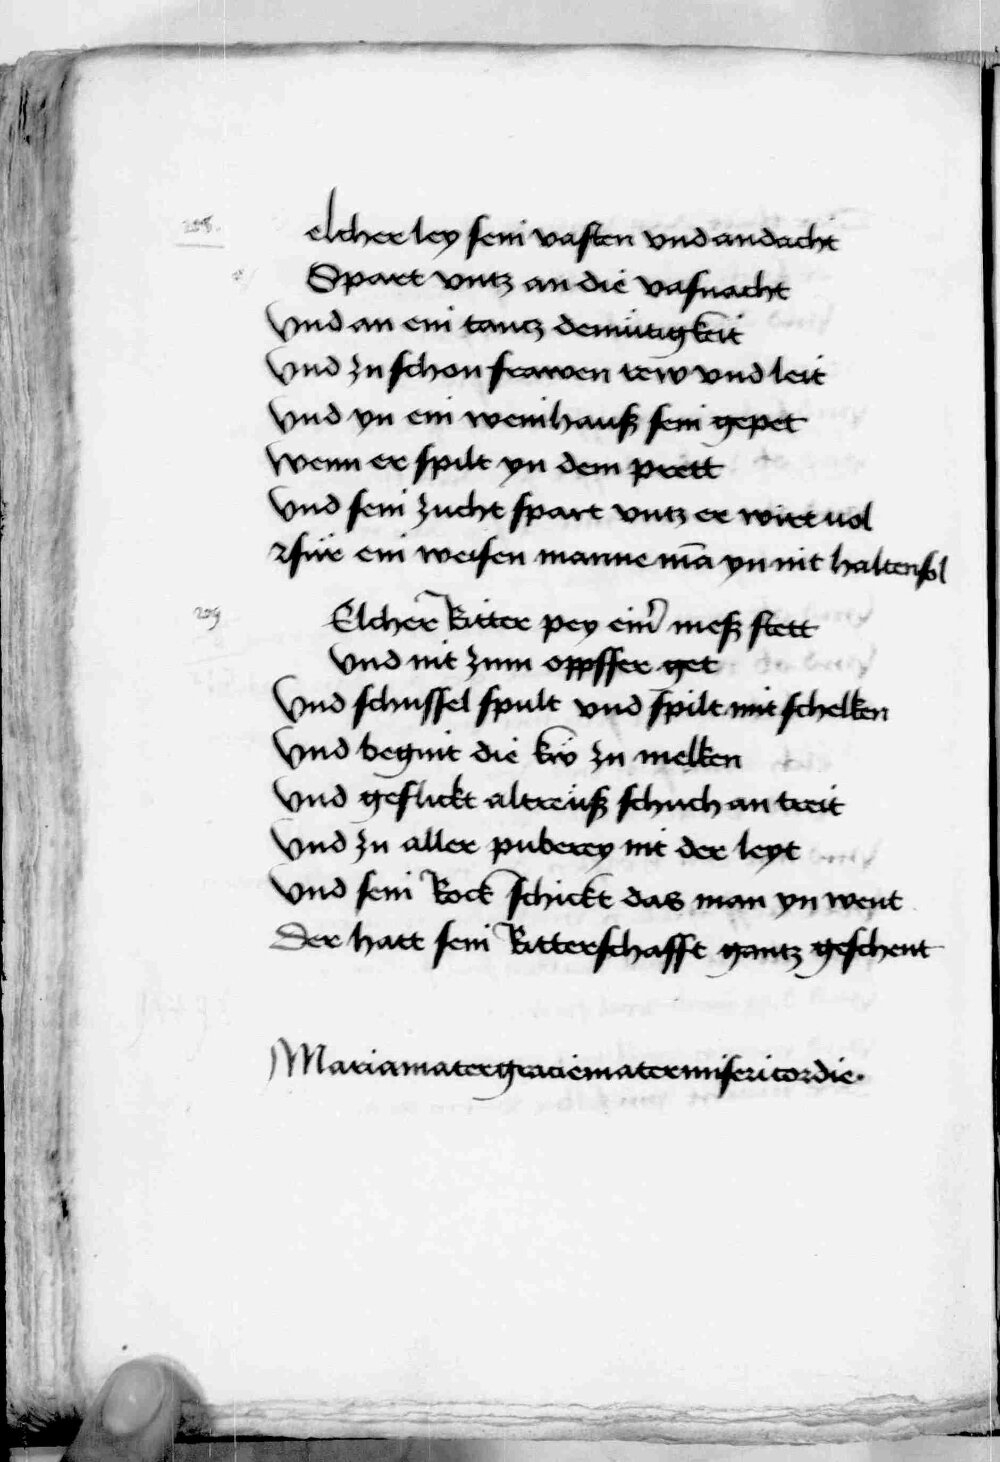 208.
elcher ley sein vasten vnd andacht
Spart vntz an die vasnacht
Vnd an ein tantz demütigkeit
Vnd zu schon frawen trew vnd leit
Vnd yn ein weinhauß sein gepet
Wenn er spilt yn dem prett
Vnd sein zucht spart vntz er wirt uol
für ein weisen manne mā yn nit halten sol
209
Elcher Ritter pey ein' meß stett
Vnd nit zum oppffer get
Vnd schussel spult vnd spilt mit schelken
Vnd begint die kw zu melken
Vnd geflickt altreüß schuch an treit
Vnd zu aller puberey nit der leyt
Vnd sein Rock schickt das man yn went
Der hatt sein Ritterschafft gantz geschent
Maria mater gracie mater misericordie.